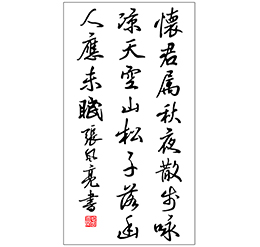 懷君属秋夜散步咏
凉天空山松子落幽
人應未眠張風亮書